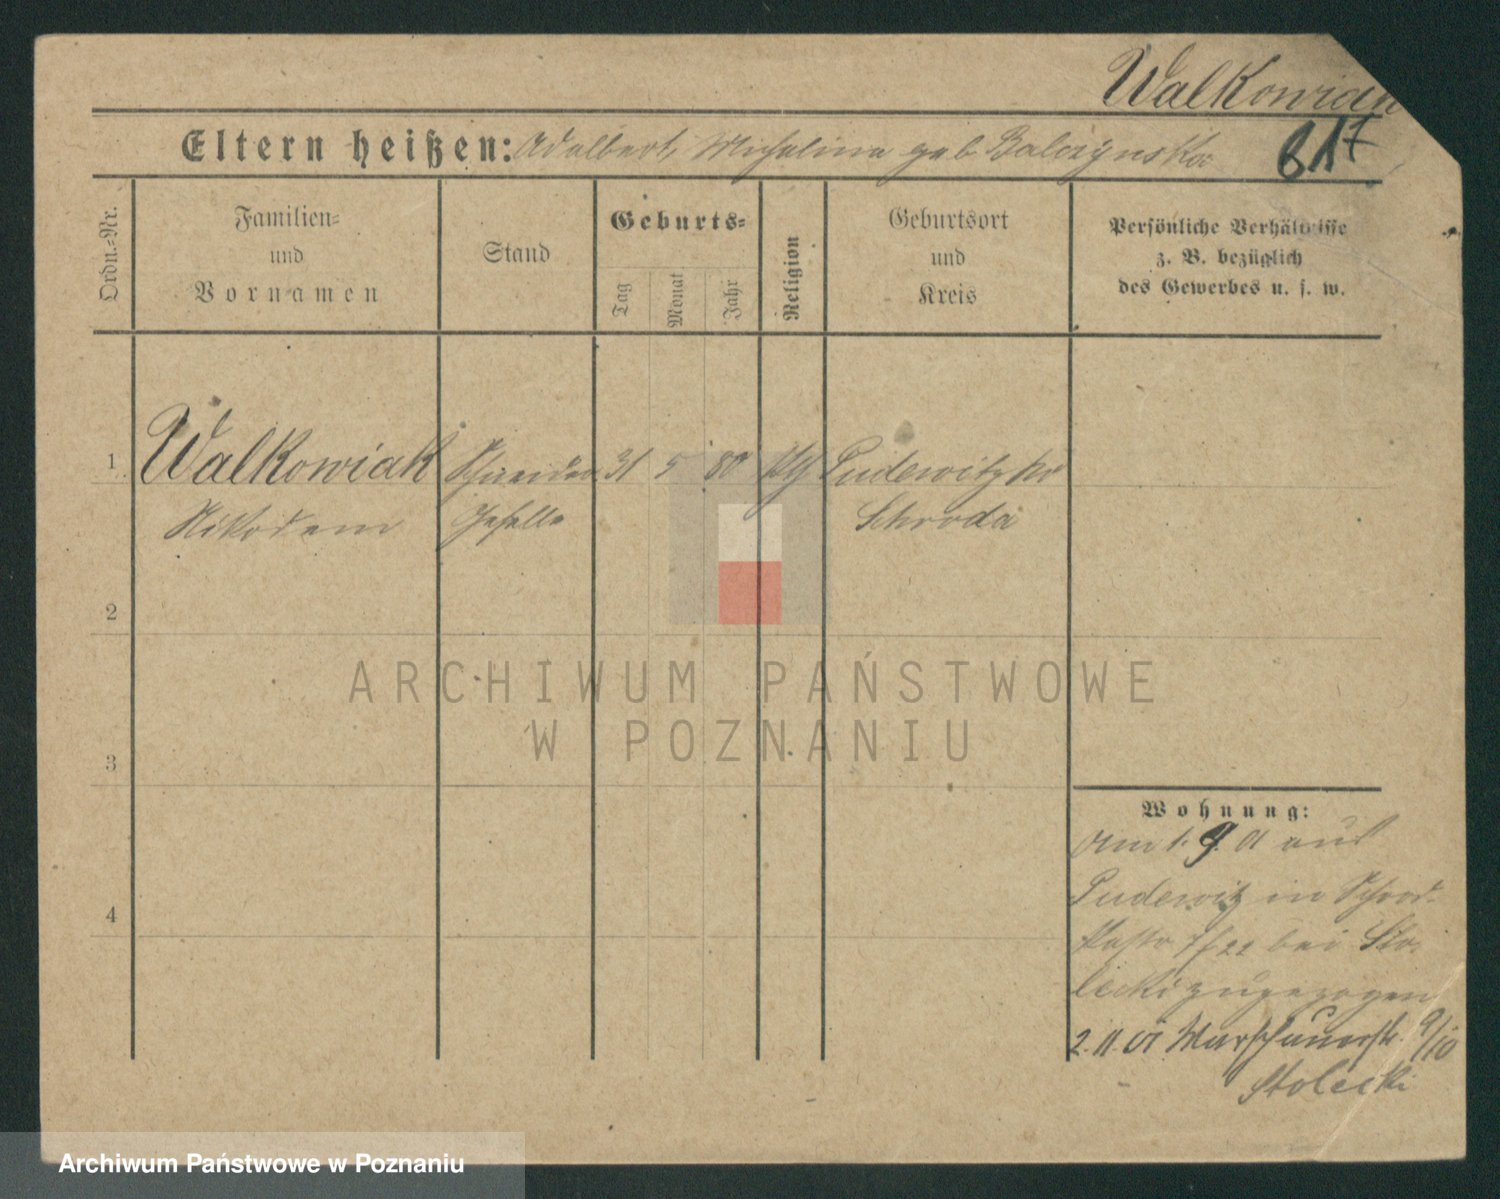 Walkowiak
Eltern heißen: Adalbert, Michalina geb Balczynska
817
Ordn.-Nr.
Familien-
und
Vornamen
Stand
Geburts-
Tag
Monat
Jahr
Religion
Geburtsort
und
Kreis
Persönliche Verhältnisse
z. B. bezüglich
des Gewerbes u. s. w.
1 Walkowiak Schneider 31 5 80 kth Pudewitz
Nikodem Geselle Schroda
2
3
4
ARCHIWUM PAŃSTWOWE
W POZNANIU
Wohnung:
Am 1. 9. 01 aus
Pudewitz in
bei Sto-
lecki zugezogen
2. 11. 01 Warschauerstr. 9/10
Stolecki
Archiwum Państwowe w Poznaniu